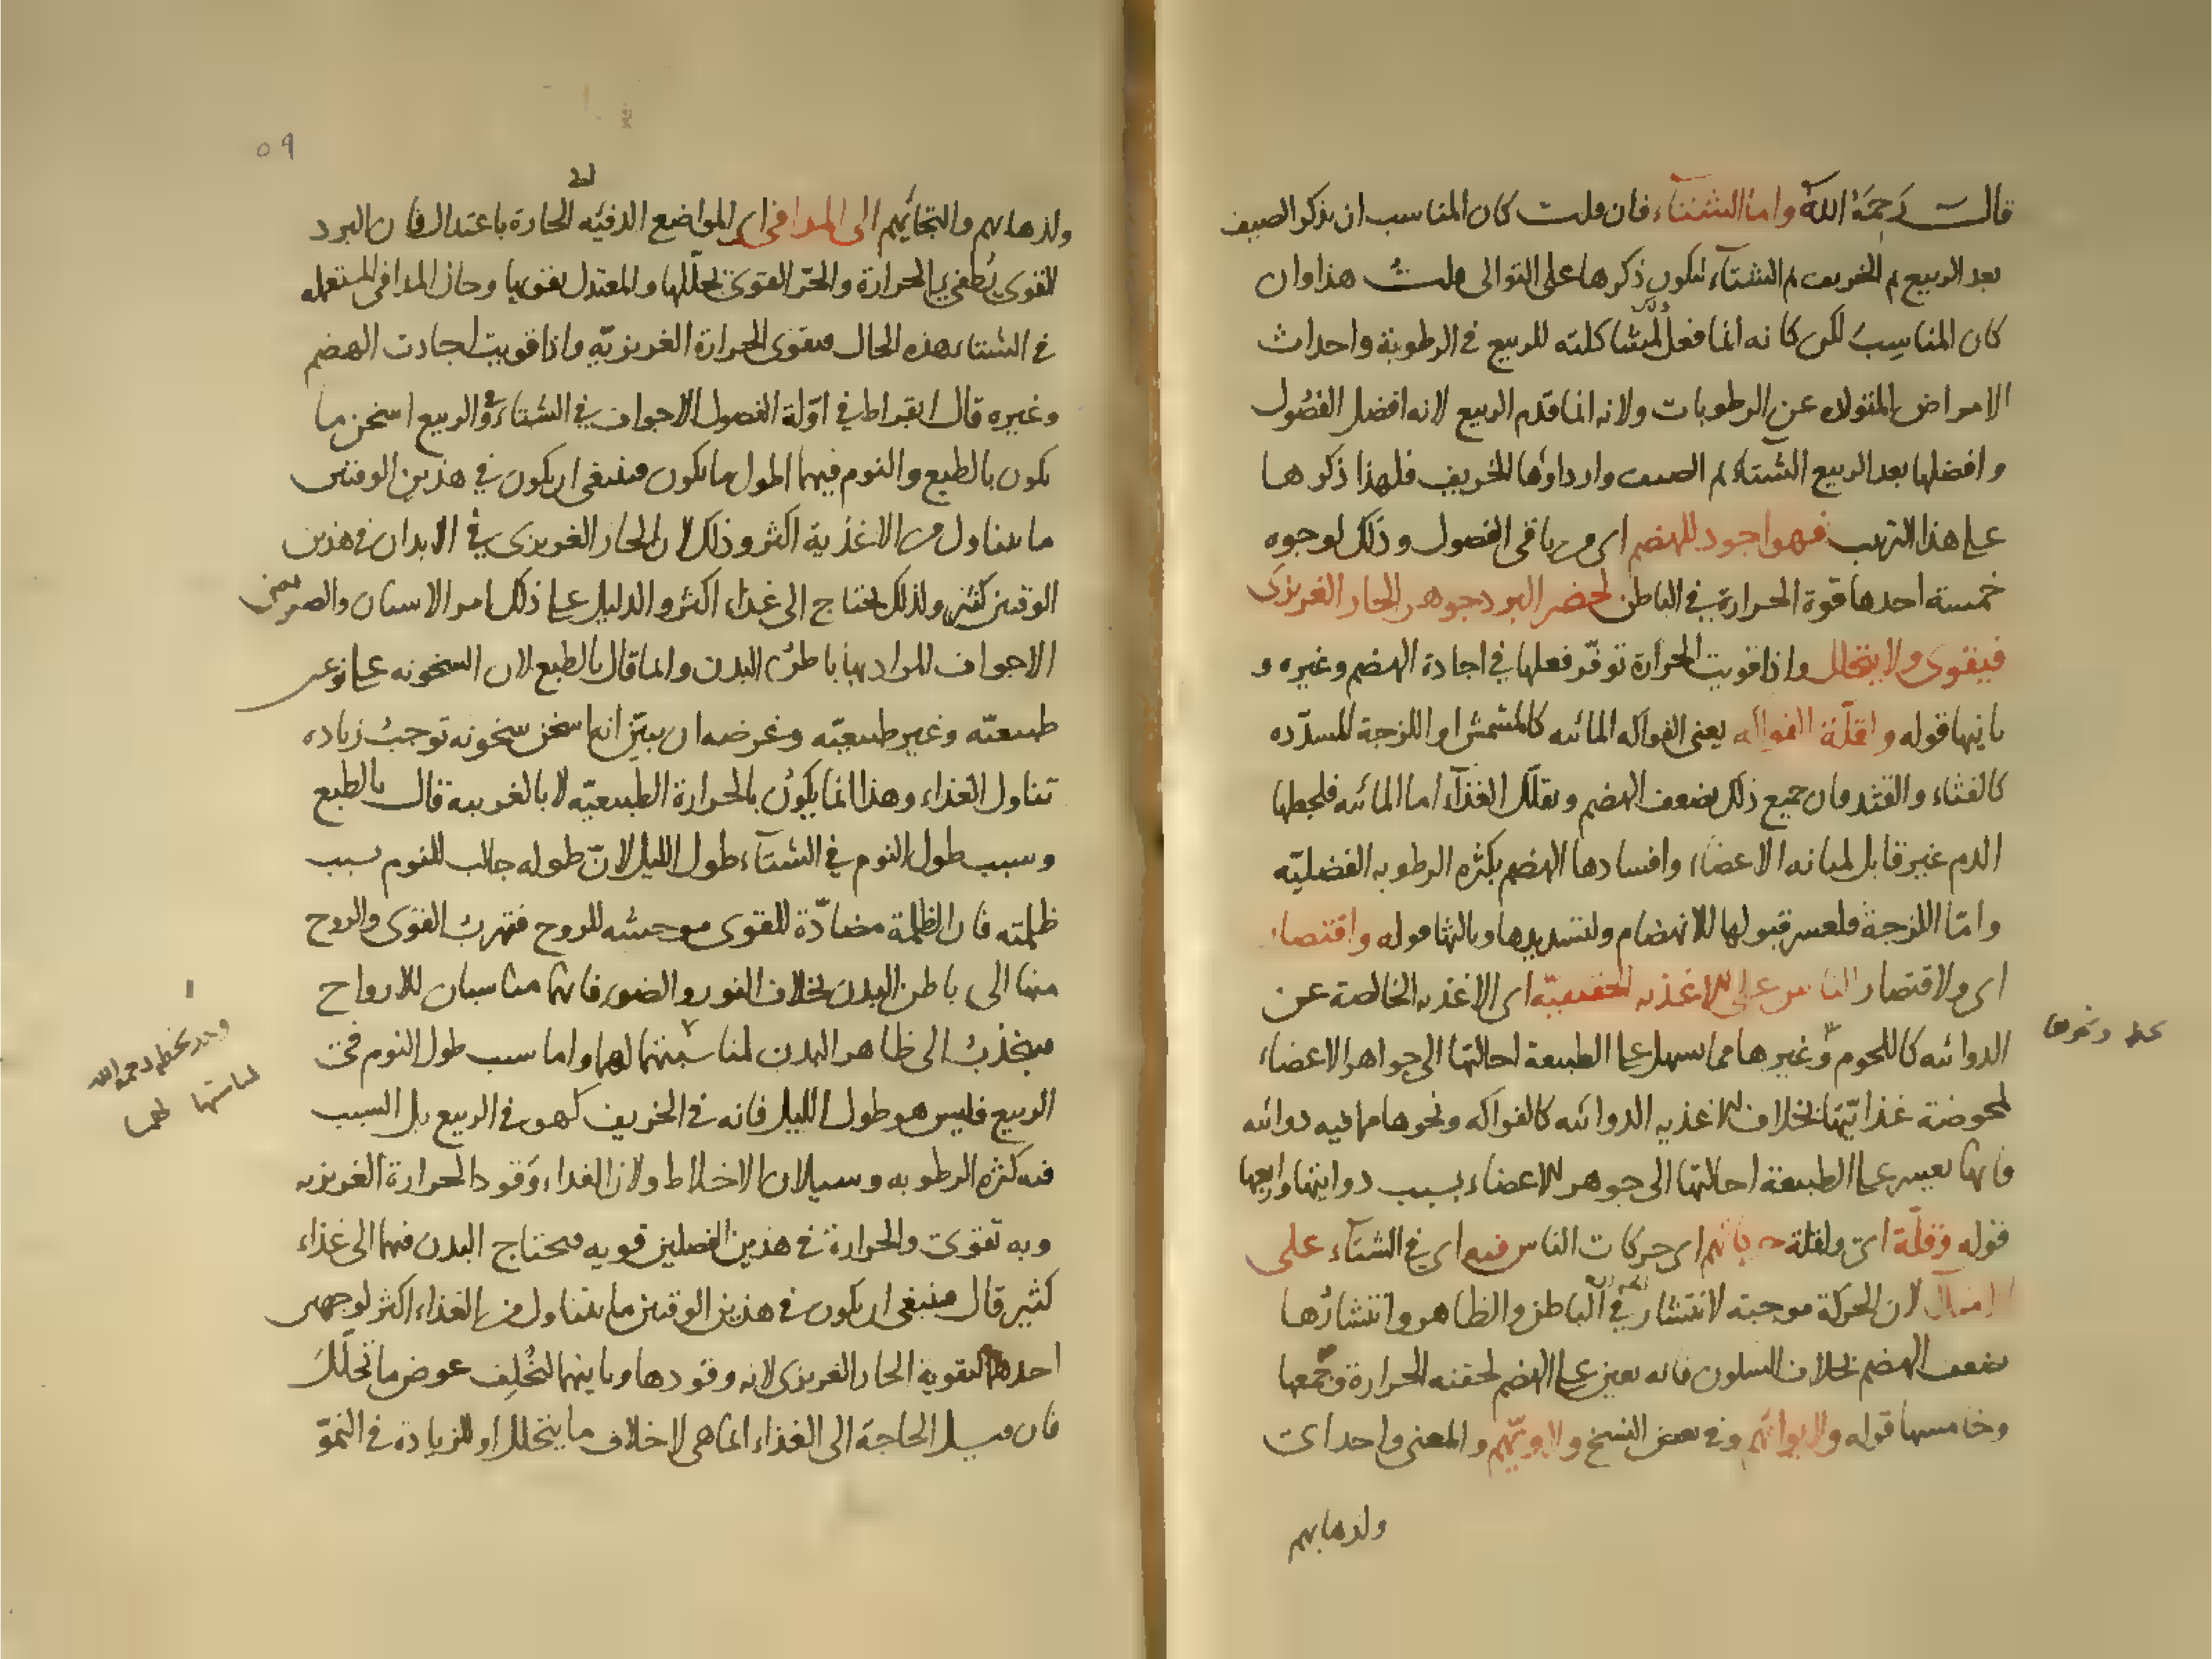 قالت رحمة الله واما الشتاء فان قلت كان المناسب ان يذكر الصيف
بعد الربيع ثم الخريف ثم الشتاء ليكون ذكرها على التوالى قلت هذا وان
كان المناسب لكن كانه انما فعل لمشاكلته للربيع فى الرطوبة واحداث
الامراض المتولده عن الرطوبات ولانه انما قدم الربيع لانه افضل الفصول
وافضلها بعد الربيع الشتاء ثم الصيف وارداؤها الخريف فلهذا ذكرها
على هذا الترتيب فهو اجود للهضم اى من باقى الفصول وذلك لوجوه
خمسة احدها قوة الحرارة فى الباطن لحصر البرد جوهر الحار الغريزى
فيقوى ولا يتحلل واذا قويت الحرارة توفر فعلها فى اجادة الهضم وغيره و
ثانيها قوله ولقلة الفواكه يعنى الفواكه المائيه كالمشمش او اللزجة المسدّده
كالقثاء والقثد فان جميع ذلك يضعف الهضم ويقلل الغذاء اما المائيه فلجعلها
الدم غير قابل لمتانه الاعضاء وافسادها الهضم بكثره الرطوبه الفضليّه
وامّا اللزجة فلعسر قبولها للانهضام ولتسديدها وثالثها قوله واقتصار
اى ولاقتصار الناس على الاغذيه الحقيقيّه اى الاغذيه الخالصة عن
الدوائيه كاللحوم وغيرها مما يسهل على الطبيعة احالتها الى جواهر الاعضاء
لمحوضة غذائيّتها بخلاف الاغذيه الدوائيه كالفواكه ونحوها مما فيه دوائيه
فانها تعسر على الطبيعة احالتها الى جوهر الاعضاء بسبب دوائيتها ورابعها
قوله وقلّة اى ولقلة حركاتهم اى حركات الناس فيه اى فى الشتاء على
الامتلاء لان الحركة موجبة لانتشار فى الباطن والظاهر وانتشارها
يضعف الهضم بخلاف السكون فانه يعين على الهضم لحقنه الحرارة وجمعها
وخامسها قوله ولايوائهم وفى بعض النسخ ولاويّهم والمعنى واحد اى
ولذهابهم
ونحوها
٥٩
ولذهابهم والتجائهم الى المدافى اى المواضع الدفيّه الحارة باعتدال فان البرد
القوى يطفى الحرارة والحرّ القوى يحللها والمعتدل يقويها وحال المدافى المستعمله
فى الشتاء بهذه الحال فيقوى الحرارة الغريزيّه واذا قويت اجادت الهضم
وغيره قال ابقراط فى اوّلة الفصول الاجواف فى الشتاء والربيع اسخن ما
يكون بالطبع والنوم فيهما اطول ما يكون فينبغى ان يكون فى هذين الوقتين
ما يتناول من الاغذية اكثر وذلك لان الحار الغريزى فى الابدان فى هذين
الوقتين كثير ولذلك يحتاج الى غذاء اكثر والدليل على ذلك امر الاسنان والصريعين
الاجواف المراد بها باطن البدن وانما قال بالطبع لان السخونه على نوعين
طبيعيّه وغير طبيعيّه وغرضه ان يبيّن انها سخن سخونه توجب زياده
تناول الغذاء وهذا انما يكون بالحرارة الطبيعيّه لا بالغريبة قال بالطبع
وسبب طول النوم فى الشتاء طول الليل لانّ طوله جالب للنوم بسبب
ظلمته فان الظلمة مضادّة للقوى موحشه للروح فتهرب القوى والروح
منها الى باطن البدن بخلاف النور والضوء فانهما مناسبان للارواح
فيجذب الى ظاهر البدن لمناسبتهما لهما واما سبب طول النوم فى
الربيع فليس هو طول الليل فانه فى الخريف كهو فى الربيع بل السبب
فيه كثره الرطوبه وسيلان الاخلاط ولان الغذاء وقود الحرارة الغريزيه
وبه تقوى والحرارة فى هذين الفصلين قويه فيحتاج البدن فيهما الى غذاء
كثير قال فينبغى ان يكون فى هذين الوقتين ما يتناول من الغذاء اكثر لوجهين
احدهما لتقوية الحار الغريزى لانه وقودها وثانيهما لتخلف عوض ما تحلّل
فان سبيل الحاجة الى الغذاء انما هى لاخلاف ما يتحلل او للزيادة فى النموّ
وجد بخطه رحمه الله
لمناسبتها لهما